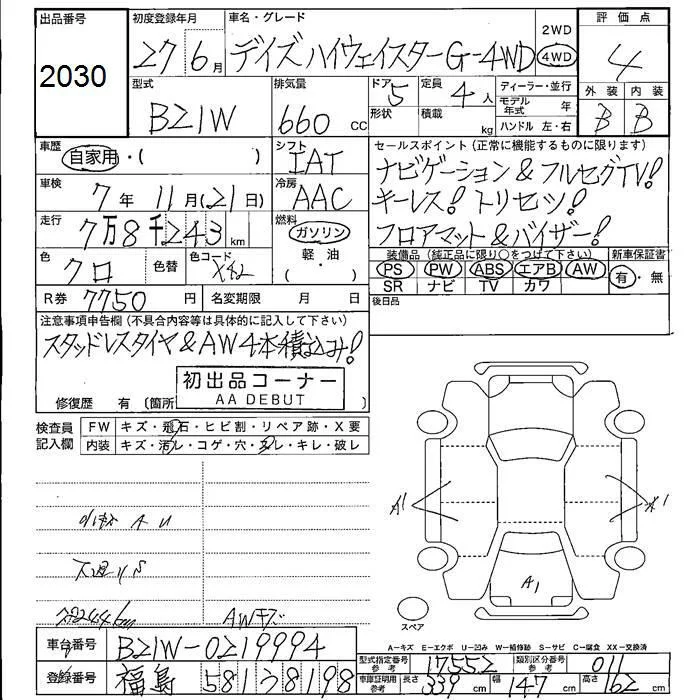 出品番号 初度登録年月 車名・グレード 2WD 評価点
2030 27 6月 デイズ ハイウェイスターG-4WD 4WD 4
型式 排気量 ドア 定員 ディーラー・並行 外装 内装
B21W 660 CC 5 4人 モデル年式 年 B B
形状 積載 kg ハンドル 左・右
車歴 自家用・( ) シフト IAT セールスポイント(正常に機能するものに限ります)
車検 7年 11月(21日) 冷房 AAC ナビゲーション & フルセグTV!
走行 7万8千243 km 燃料 ガソリン キーレス! トリセツ!
軽・油 フロアマット&バイザー!
色 クロ 色替 色コード ( ) 装備品(純正品に限り○をつけて下さい) 新車保証書
PS PW ABS エアB AW 有・無
SR ナビ TV カワ
R券 7750 円 名変期限 月 日 後日品
注意事項申告欄(不具合内容等は具体的に記入して下さい)
スタッドレスタイヤ&AW4本積込み!
初出品コーナー
AA DEBUT
修復歴 有(箇所 )
検査員記入欄 FW キズ・飛石・ヒビ割・リペア跡・X要
内装 キズ・汚レ・コゲ・穴・スレ・キレ・破レ
A1 X1
A1
AWキズ スペア
A-キズ E-エクボ U-凹み W-補修跡 S-サビ C-腐食 XX-交換済
車台番号 B21W-0219994 型式指定番号 参考 17552 類別区分番号 参考 011
登録番号 福島 581 8198 車庫証明用 参考 長さ 339 cm 幅 147 cm 高さ 162 cm